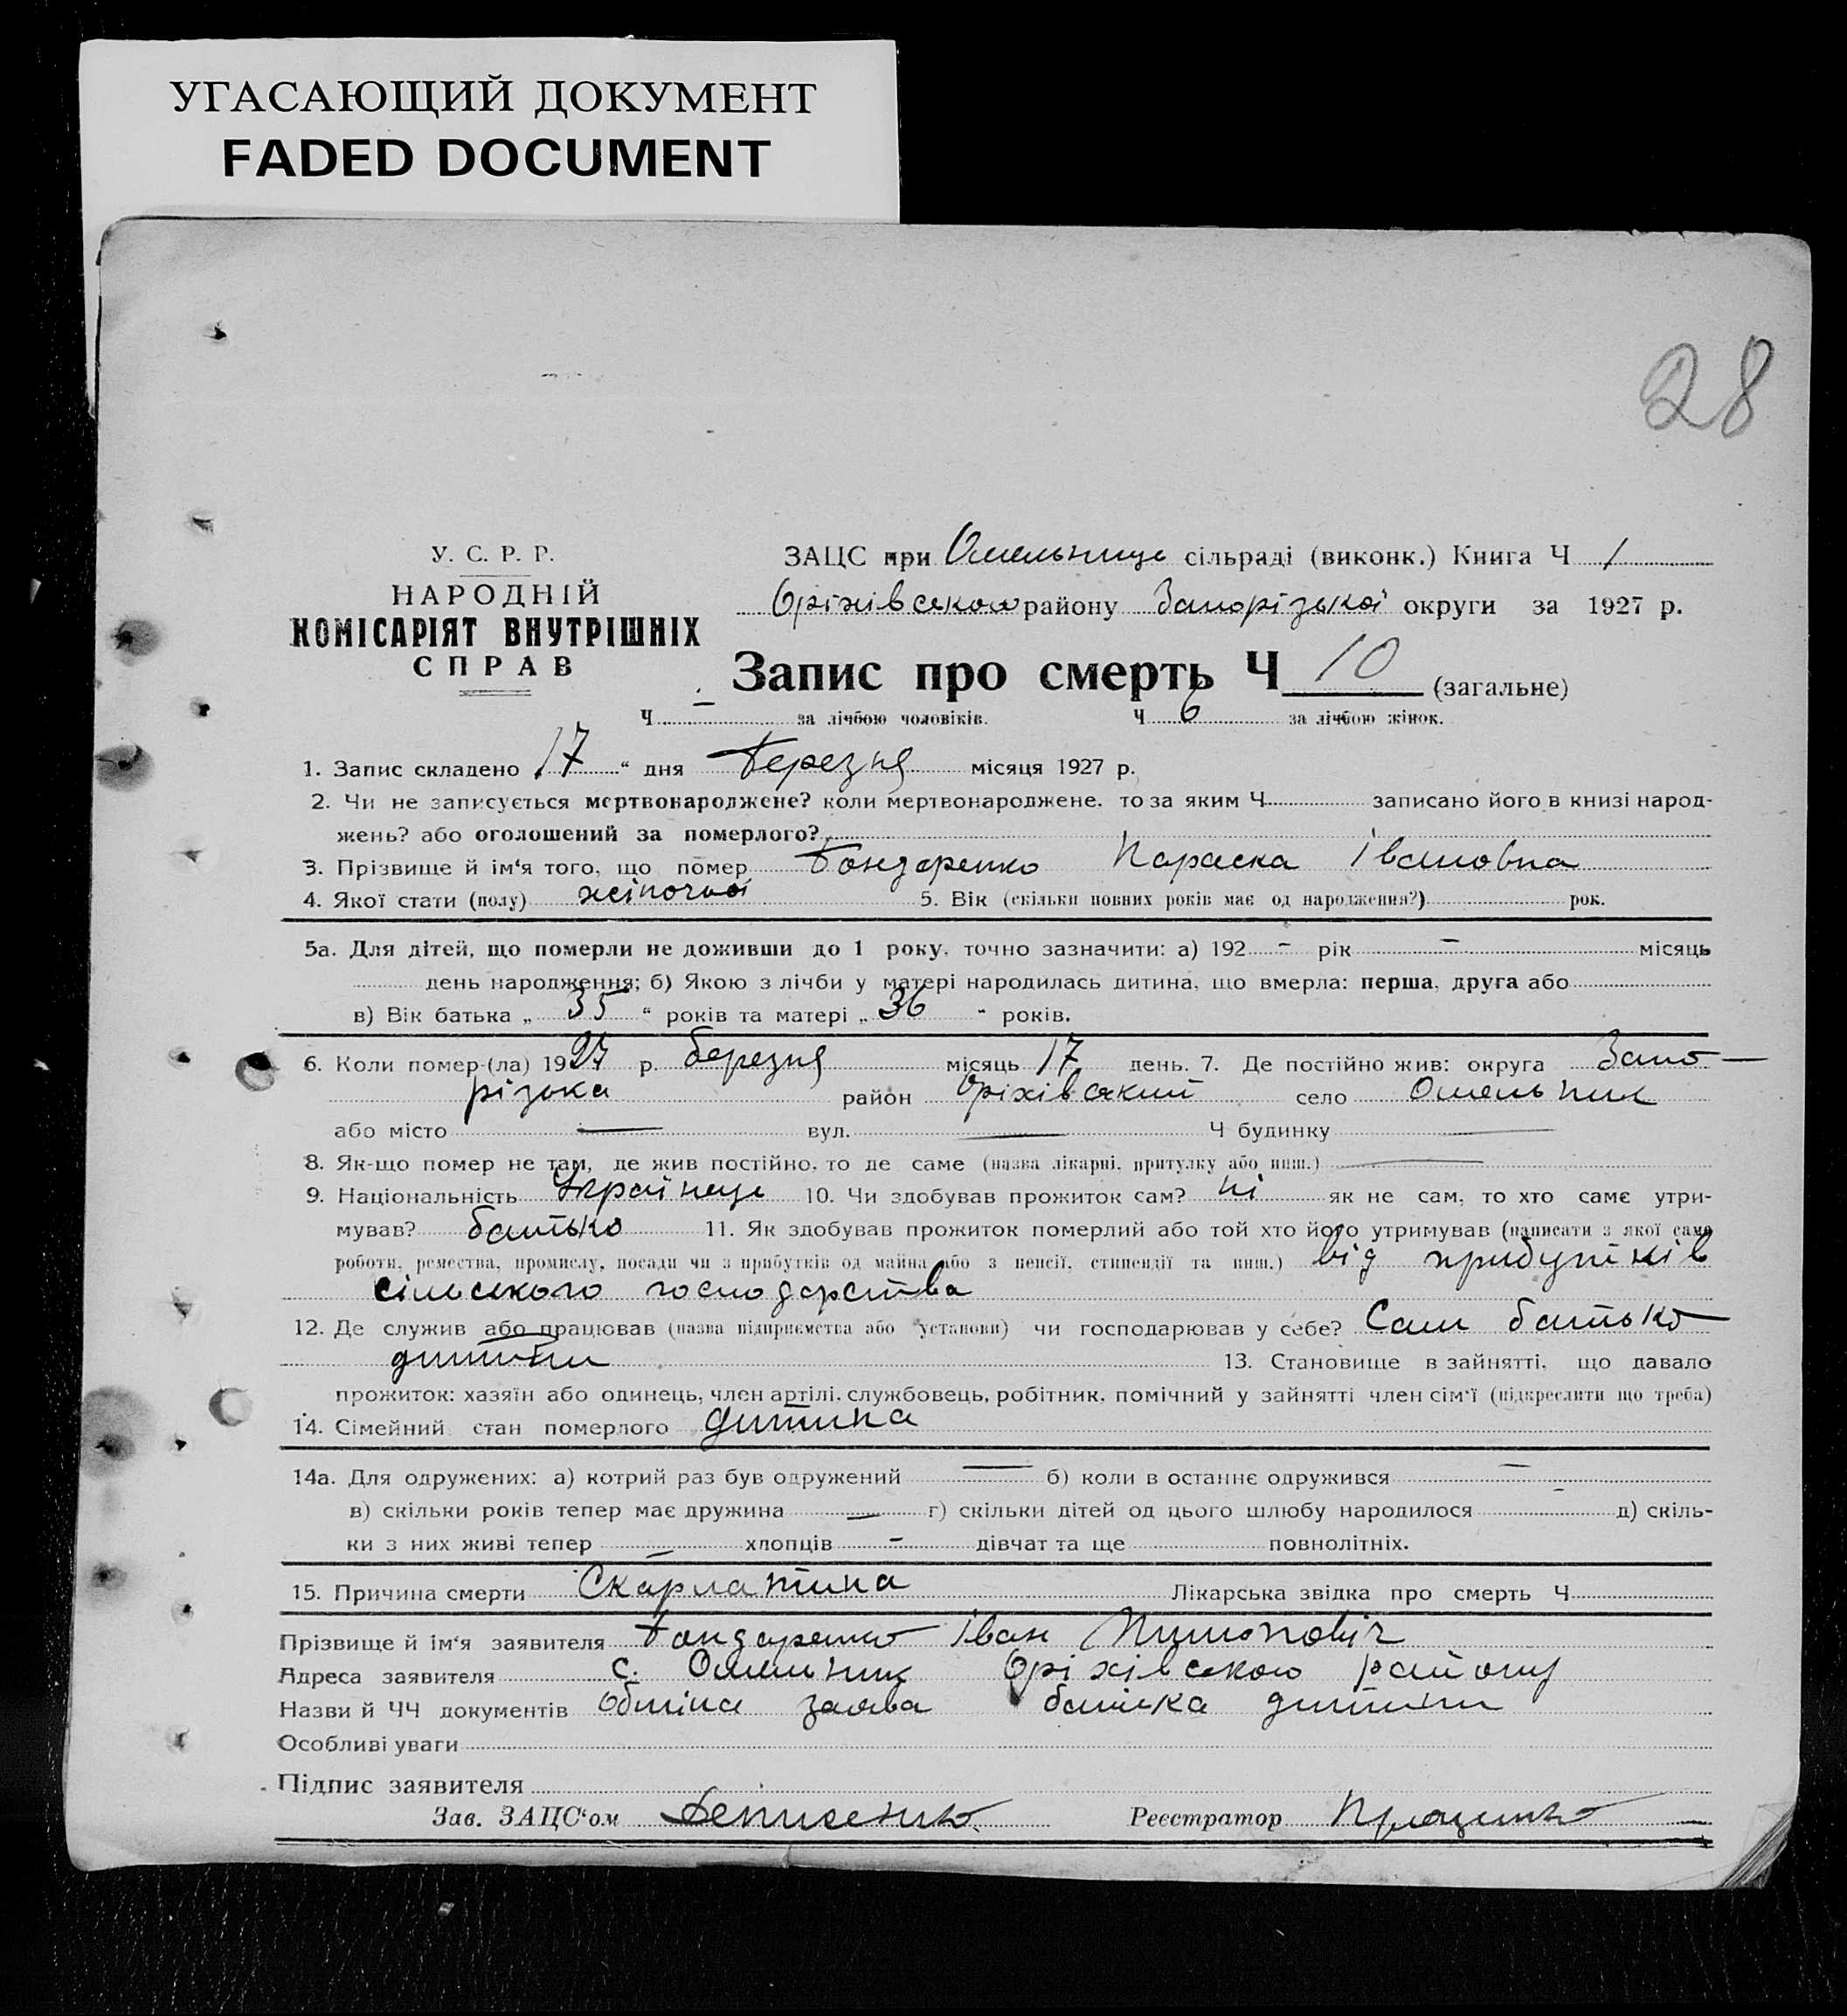 УГАСАЮЩИЙ ДОКУМЕНТ
FADED DOCUMENT
28
У. С. Р. Р.
НАРОДНІЙ
КОМІСАРІЯТ ВНУТРІШНІХ
СПРАВ
ЗАЦС при Омельниц сільраді (виконк.) Книга Ч 1
Оріхівського району Запорізької округи за 1927 р.
Запис про смерть Ч 10 (загальне)
Ч – за лічбою чоловіків. Ч 6 за лічбою жінок.
1. Запис складено 17 “ дня Березня місяця 1927 р.
2. Чи не записується мертвонароджене? коли мертвонароджене. то за яким Ч записано його в книзі народ-
жень? або оголошений за померлого?
3. Прізвище й ім‘я того, що помер Бондаренко Параска Івановна
4. Якої стати (полу) жіночої 5. Вік (скільки повних років має од народження?) рок.
5а. Для дітей, що померли не доживши до 1 року, точно зазначити: а) 192 – рік – місяць
день народження; б) Якою з лічби у матері народилась дитина, що вмерла: перша, друга або
в) Вік батька „ 35 “ років та матері „ 36 “ років.
6. Коли помер-(ла) 1927 р. березня місяць 17 день. 7. Де постійно жив: округа Запо-
різька район Оріхівский село Омельник
або місто — вул. — Ч будинку —
8. Як-що помер не там, де жив постійно, то де саме (назва лікарні, притулку або инш.) —
9. Національність Українец 10. Чи здобував прожиток сам? ні як не сам, то хто саме утри-
мував? батько 11. Як здобував прожиток померлий або той хто його утримував (написати з якої саме
роботи, ремества, промислу, посади чи з прибутків од майна або з пенсії, стипендії та инш.) від прибутків
сільского господарства
12. Де служив або працював (назва підприємства або установи) чи господарював у себе? Сам батько
дитини 13. Становище в зайнятті, що давало
прожиток: хазяїн або одинець, член артілі, службовець, робітник, помічний у зайнятті член сім‘ї (підкреслити що треба)
14. Сімейний стан померлого дитина
14а. Для одружених: а) котрий раз був одружений — б) коли в останнє одружився —
в) скільки років тепер має дружина — г) скільки дітей од цього шлюбу народилося – д) скіль-
ки з них живі тепер — хлопців – дівчат та ще повнолітніх.
15. Причина смерти Скарлатина Лікарська звідка про смерть Ч
Прізвище й ім‘я заявителя Бондаренко Іван
Адреса заявителя с. Омельник Оріхівського району
Назви й ЧЧ документів заява батька дитини
Особливі уваги
Підпис заявителя
Зав. ЗАЦС‘ом Денисенко Реєстратор